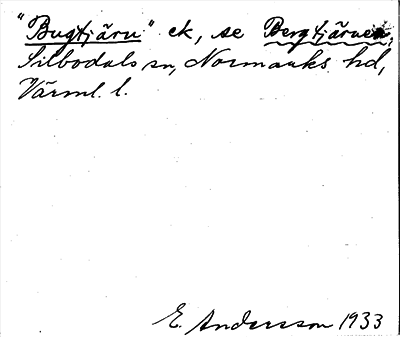 "Bugtjärn" ek, se Bergtjärnen,
Silbodals sn, Normarks hd,
Värml. l.
E. Andersson 1933